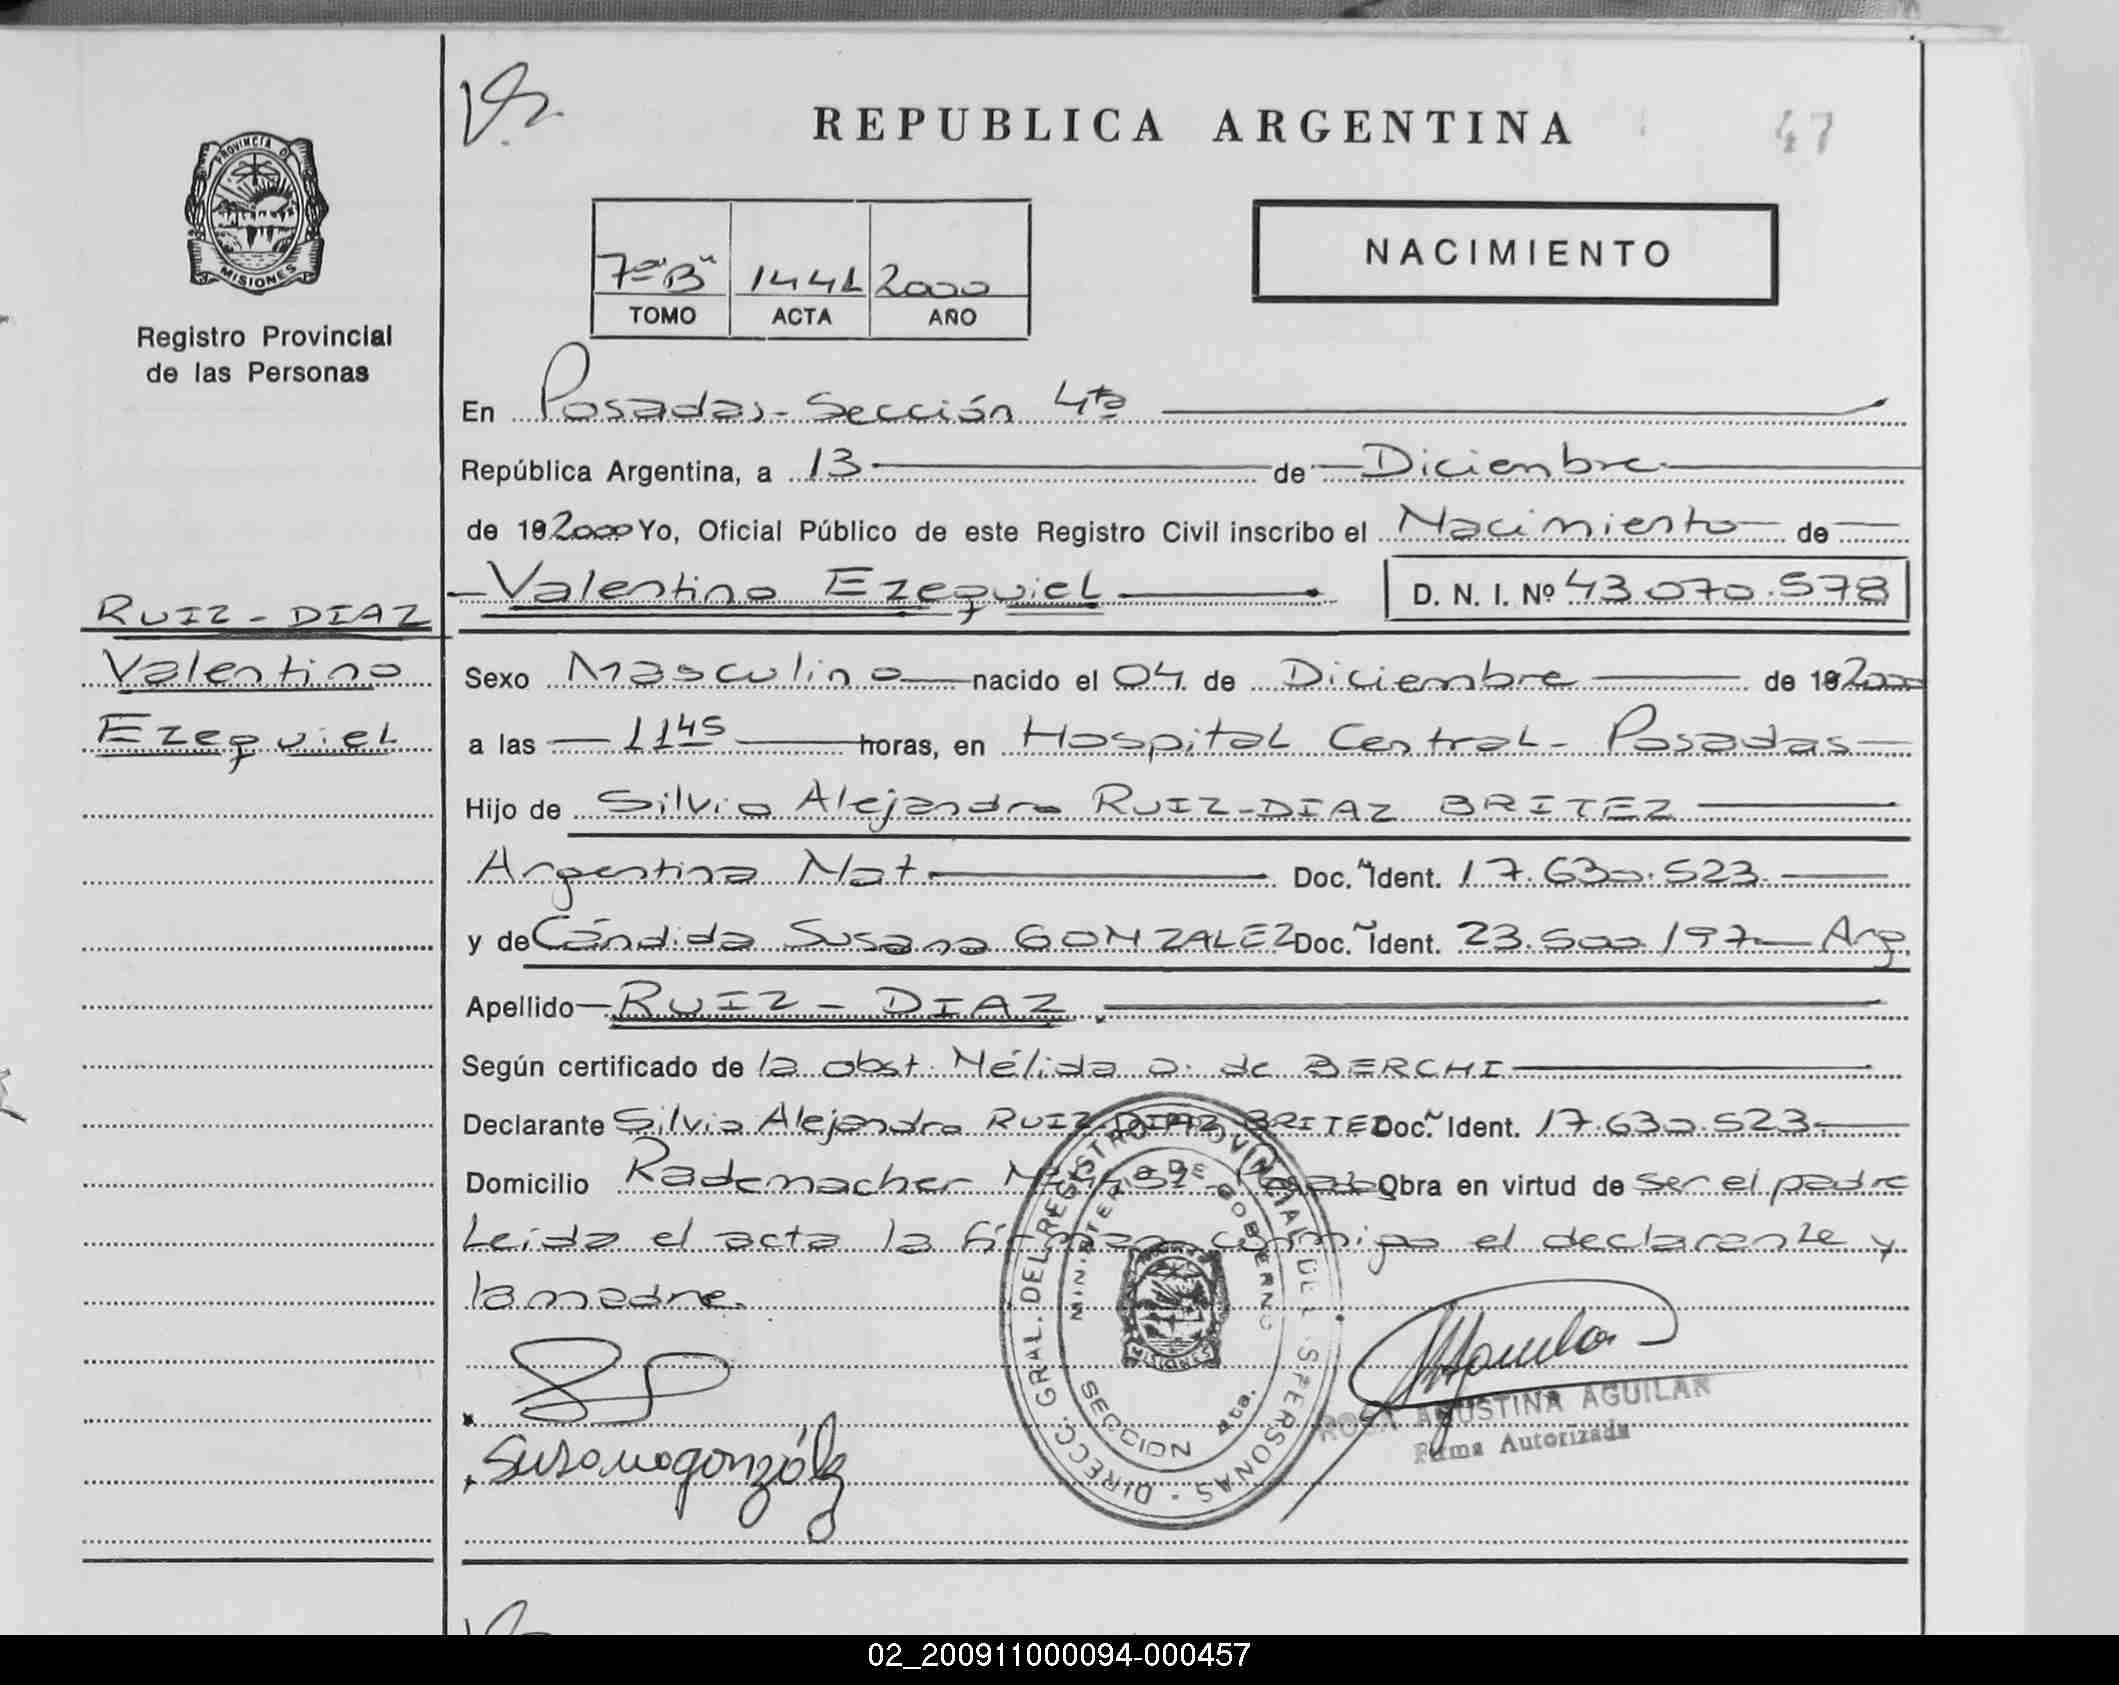 REPUBLICA ARGENTINA
47
PROVINCIA DE
MISIONES
Registro Provincial
de las Personas
7mo "B" 1441 2000
TOMO ACTA AÑO
NACIMIENTO
En Posadas - Sección 4ta
República Argentina, a 13 de Diciembre
de 19 2000 Yo, Oficial Público de este Registro Civil inscribo el Nacimiento de
Valentino Ezequiel D. N. I. Nº 43.070.578
RUIZ - DIAZ
Valentino
Ezequiel
Sexo Masculino nacido el 04 de Diciembre de 19 2000
a las 11 45 horas, en Hospital Central - Posadas
Hijo de Silvio Alejandro RUIZ-DIAZ BRITEZ
Argentina Nat Doc. Ident. 17.630.523
y de Cándida Susana GONZALEZ Doc. Ident. 23.500.197 Arg.
Apellido RUIZ - DIAZ
Según certificado de la obst. Nélida a. de BERCHI
Declarante Silvio Alejandro RUIZ DIAZ BRITEZ Doc. Ident. 17.630.523
Domicilio Rademacher Obra en virtud de ser el padre
Leida el acta la firman conmigo el declarante y
la madre.
DIRECC. GRAL. DEL REGISTRO PROVINCIAL DE LAS PERSONAS
MINISTERIO DE GOBIERNO
MISIONES
SECCION 4ta.
Susana gonzález
ROSA AGUSTINA AGUILAR
Firma Autorizada
02_200911000094-000457